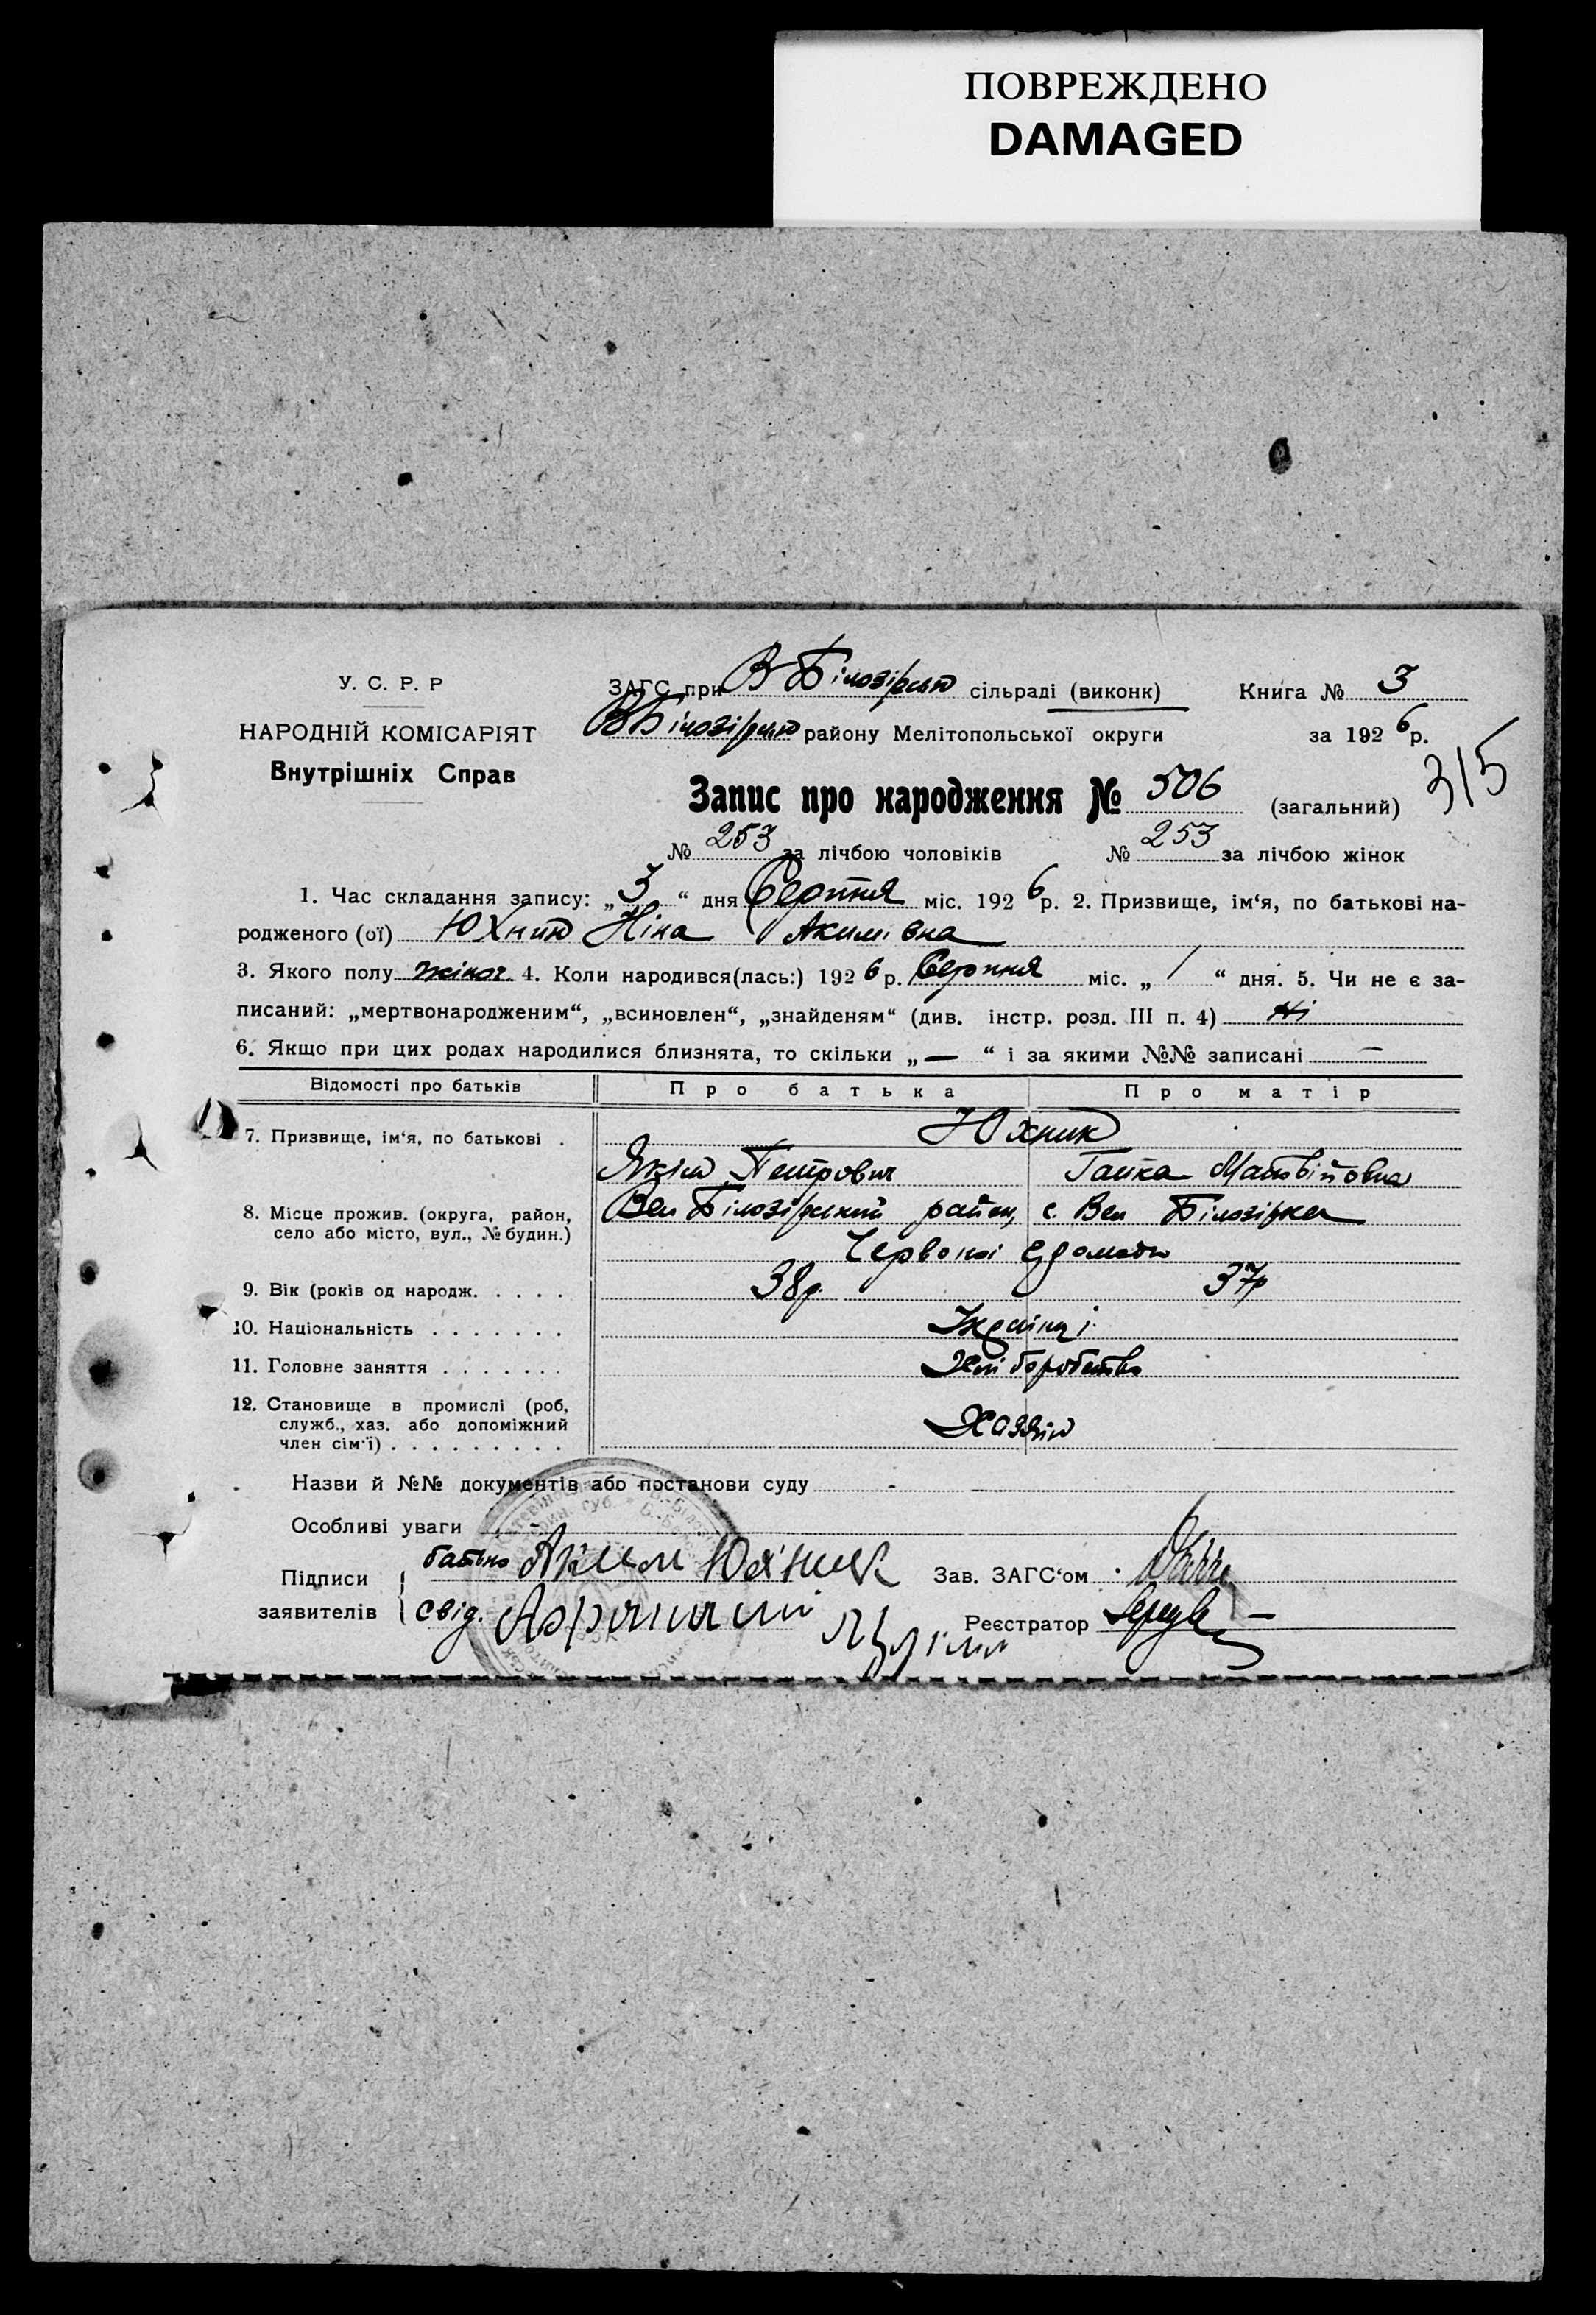 ПОВРЕЖДЕНО
DAMAGED
У. С. Р. Р
НАРОДНІЙ КОМІСАРІЯТ
Внутрішніх Справ
ЗАГС при В Білозірськ сільраді (виконк) Книга № 3
ВБілозірськ району Мелітопольської округи за 1926 р.
315
Запис про народження № 506 (загальний)
№ 253 за лічбою чоловіків № 253 за лічбою жінок
1. Час складання запису: „ 3 “ дня Серпня міс. 1926 р. 2. Призвище, ім‘я, по батькові на-
родженого (ої) Юхник Ніна Акимівна
3. Якого полу жіноч. 4. Коли народився(лась:) 1926 р. Серпня міс. „ 1 “ дня. 5. Чи не є за-
писаний: „мертвонародженим“, „всиновлен“, „знайденям“ (див. інстр. розд. III п. 4) Ні
6. Якщо при цих родах народилися близнята, то скільки „ — “ і за якими №№ записані —
Відомості про батьків Про батька Про матір
7. Призвище, ім‘я, по батькові . Юхник
Якім Петрович Ганка Матвійовна
8. Місце прожив. (округа, район, село або місто, вул., № будин.) Вел Білозірський район, с. Вел Білозірка
Червоної
9. Вік (років од народж. . . . . 38р. 37р
10. Національність . . . . . . . Українці
11. Головне заняття . . . . . . . Хліборобство
12. Становище в промислі (роб, служб., хаз. або допоміжний член сім‘ї) . . . . . . . . . Хазяїн
Назви й №№ документів або постанови суду -
Особливі уваги
Підписи заявителів
батько Аким Юхник Зав. ЗАГС‘ом
свід. Реєстратор